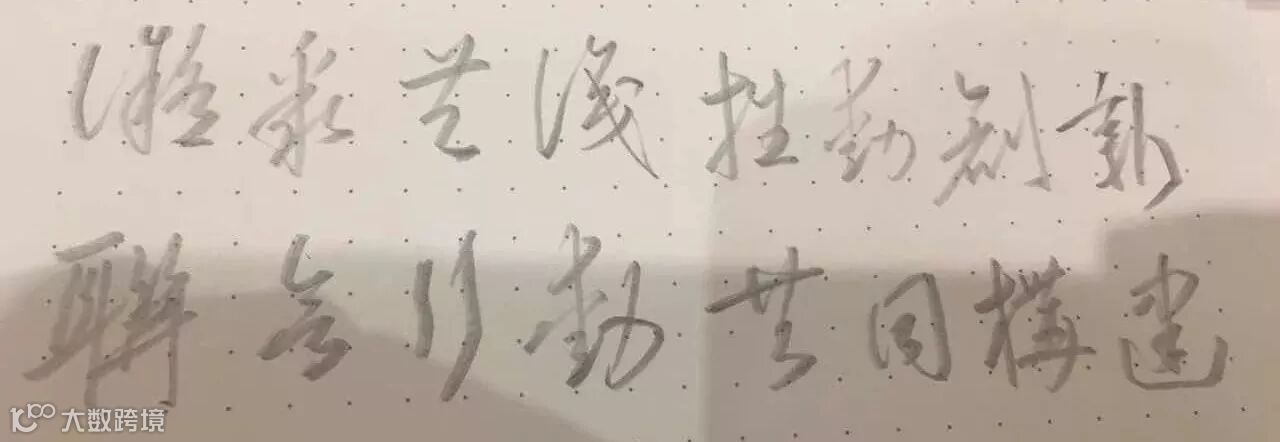 凝聚共識 推動創新
聯合行動 共同構建
大数跨境